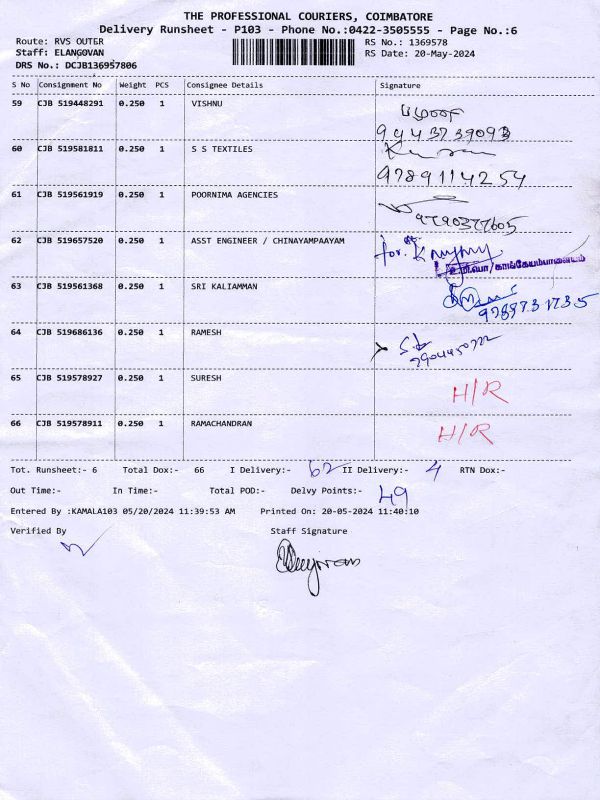 THE PROFESSIONAL COURIERS, COIMBATORE
Delivery Runsheet - P103 - Phone No.:0422-3505555 - Page No.:6
Route: RVS OUTER RS No.: 1369578
Staff: ELANGOVAN RS Date: 20-May-2024
DRS No.: DCJB136957806
S No Consignment No Weight PCS Consignee Details Signature
59 CJB 519448291 0.250 1 VISHNU
9443739093
60 CJB 519581811 0.250 1 S S TEXTILES
9789114254
61 CJB 519561919 0.250 1 POORNIMA AGENCIES
9790377605
62 CJB 519657520 0.250 1 ASST ENGINEER / CHINAYAMPAAYAM
for.
63 CJB 519561368 0.250 1 SRI KALIAMMAN
9789731735
64 CJB 519686136 0.250 1 RAMESH
65 CJB 519578927 0.250 1 SURESH H/R
66 CJB 519578911 0.250 1 RAMACHANDRAN H/R
Tot. Runsheet:- 6 Total Dox:- 66 I Delivery:- 62 II Delivery:- 4 RTN Dox:-
Out Time:- In Time:- Total POD:- Delvy Points:- 49
Entered By :KAMALA103 05/20/2024 11:39:53 AM Printed On: 20-05-2024 11:40:10
Verified By Staff Signature